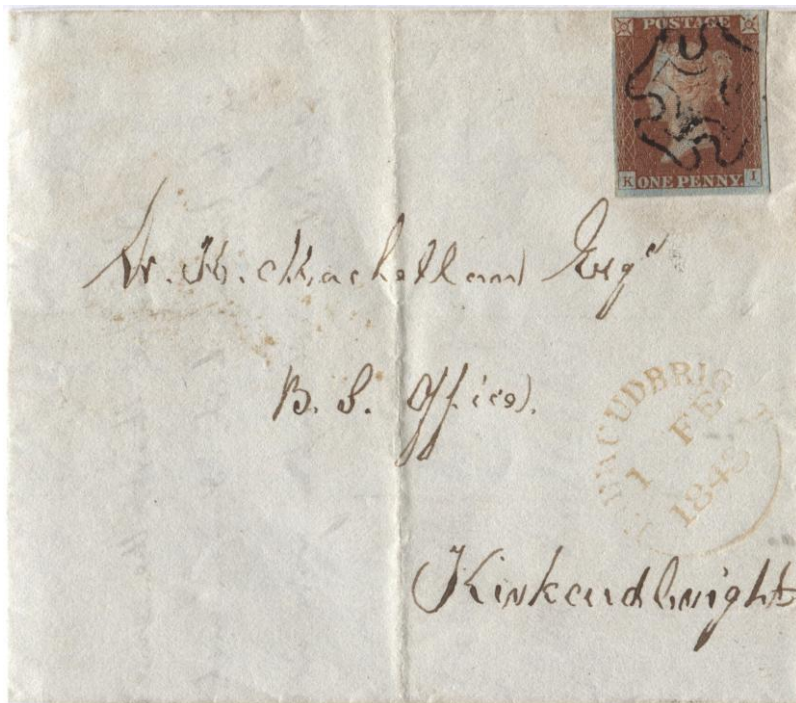 POSTAGE
K ONE PENNY. I
W. H. Maclellan Esqr
B. S. Office.
1 FE
Kirkcudbright